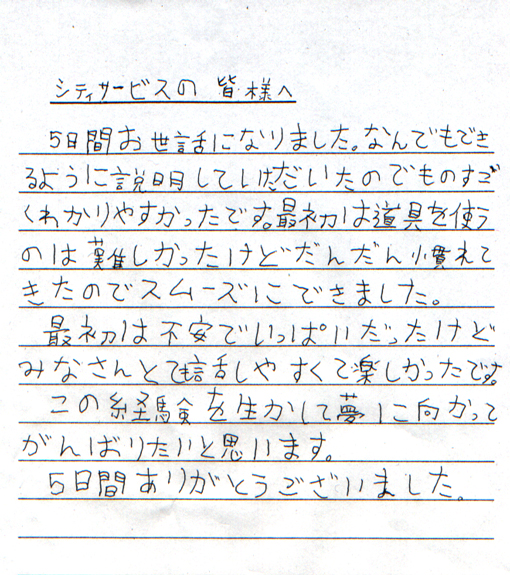 シティサービスの 皆様へ
5日間お世話になりました。なんでもでき
るように説明していただいたのでものすご
くわかりやすかったです。最初は道具を使う
のは難しかったけどだんだん慣れて
きたのでスムーズにできました。
最初は不安でいっぱいだったけど
みなさんとても話しやすくて楽しかったです。
この経験を生かして夢に向かって
がんばりたいと思います。
5日間ありがとうございました。